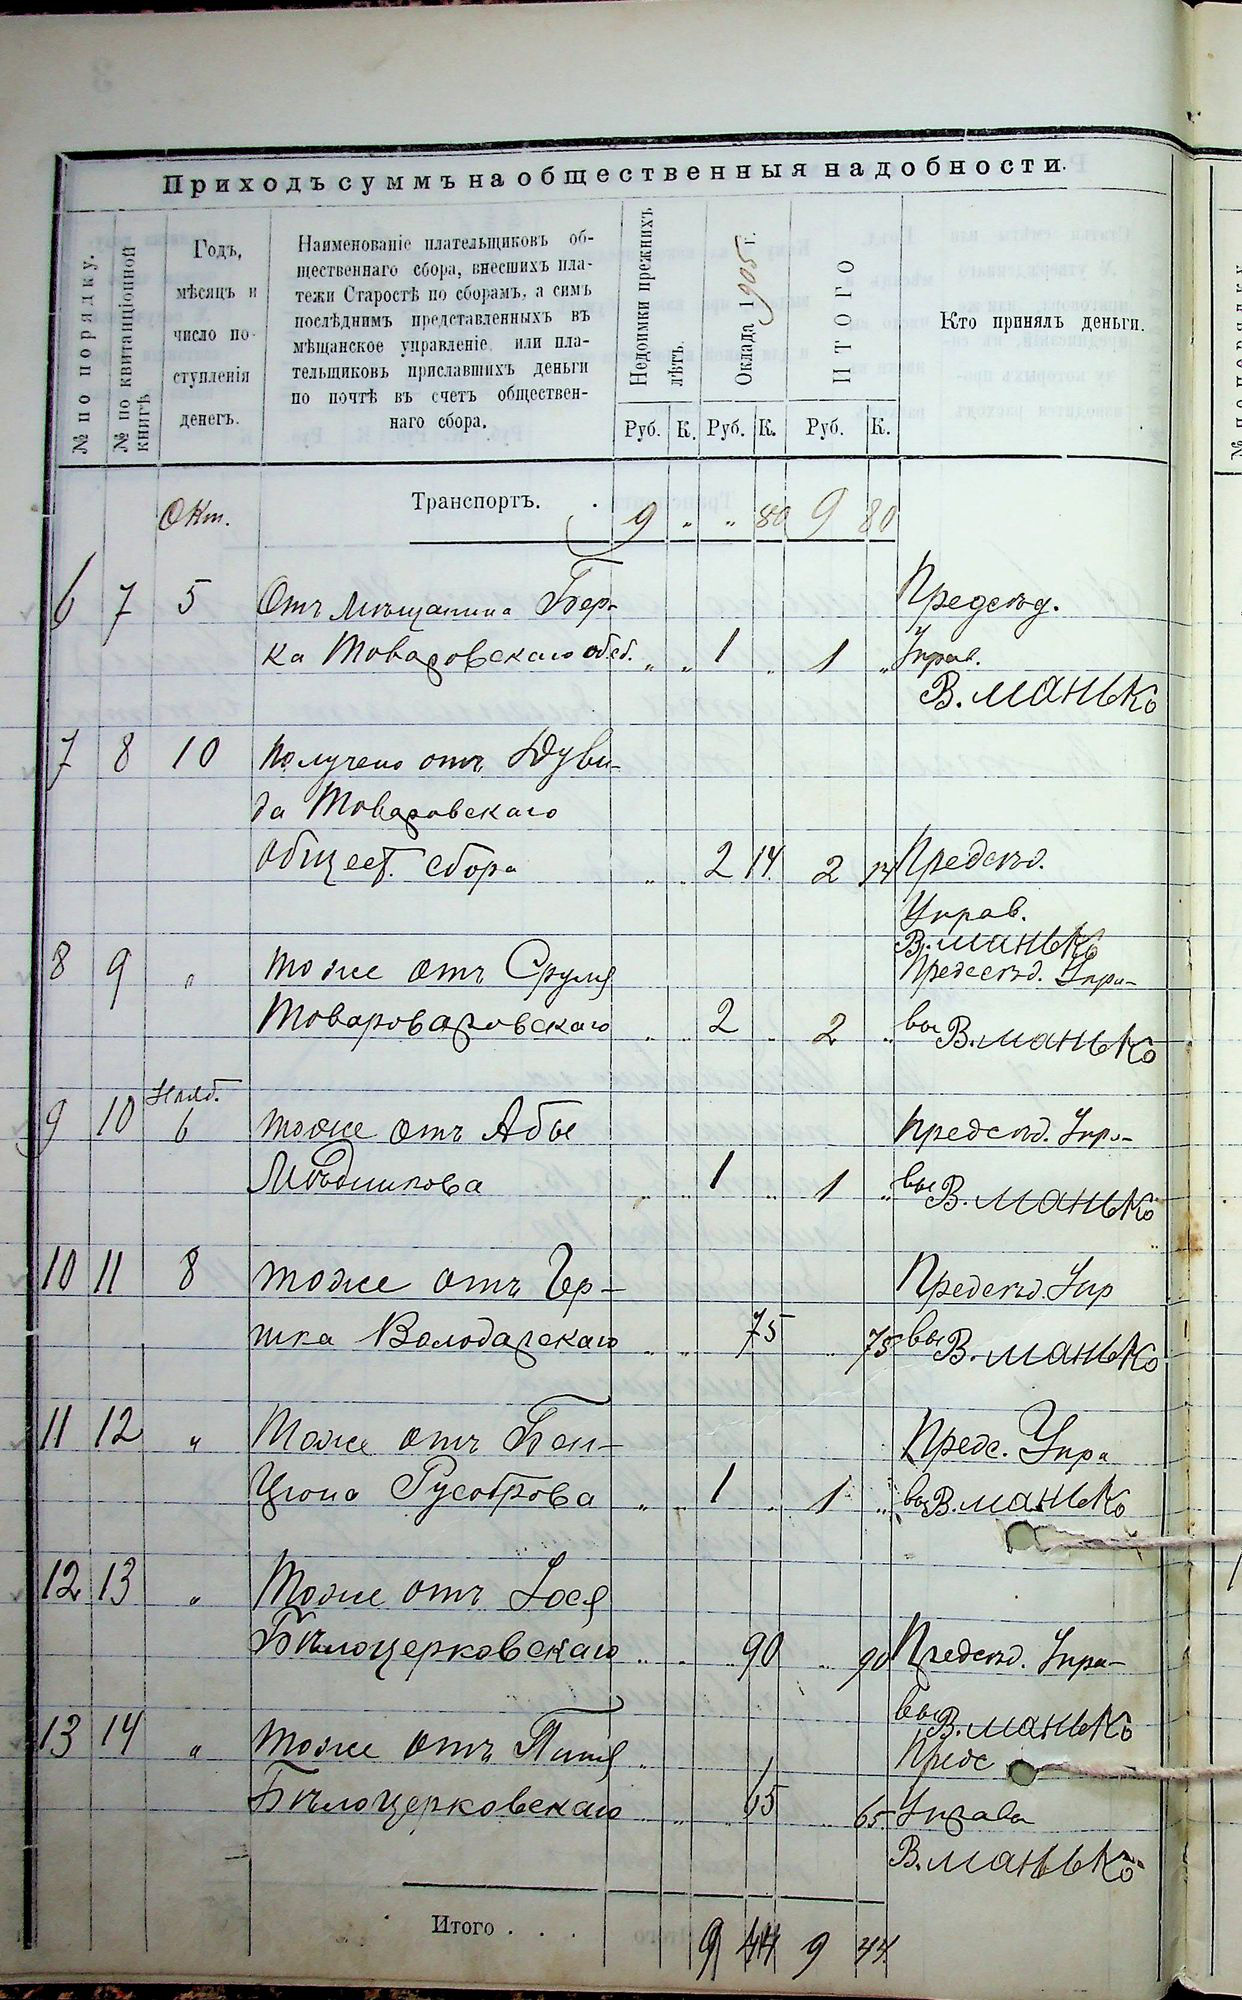 Приходъ суммъ на общественныя надобности.
№ по порядку.
№ по квитанціонной книгѣ.
Годъ,
мѣсяцъ и
число по-
ступленія
денегъ.
Наименованіе плательщиковъ об-
щественнаго сбора, внесшихъ пла-
тежи Старостѣ по сборамъ, а симъ
послѣднимъ представленныхъ въ
мѣщанское управленіе или пла-
тельщиковъ приславшихъ деньги
по почтѣ въ счетъ обществен-
наго сбора.
Недоимки прежнихъ лѣтъ.
Оклада 1905 г.
ИТОГО
Кто принялъ деньги.
Руб. К. Руб. К. Руб. К.
Окт. Транспортъ. . 9 „ „ 80 9 80
6 7 5 Отъ мѣщанина Бер- Предсѣд.
ка Товаровскаго об. сб. „ „ 1 „ 1 „ Управ.
В. Манько
7 8 10 Получено отъ Дуви-
да Товаровскаго
общест. сбора „ „ 2 14 2 14 Предсѣд.
Управ.
В. Манько
8 9 „ тоже отъ Сруля Предсѣд. Упра-
Товароваровскаго „ „ 2 „ 2 „ вы В. Манько
Нояб.
9 10 6 тоже отъ Абы Предсѣд. Упра-
Мѣдникова „ „ 1 „ 1 „ вы В. Манько
10 11 8 тоже отъ Гер- Предсѣд. Упр
шка Володарскаго „ „ 75 „ 75 вы В. Манько
11 12 „ Тоже отъ Бен- Предс. Упра
Цiона „ „ 1 „ 1 „ вы В. Манько
12 13 „ Тоже отъ Іося
Бѣлоцерковскаго „ „ „ 90 „ 90 Предсѣд. Упра-
вы В. Манько
13 14 „ тоже отъ Предс
Бѣлоцерковскаго „ „ „ 65 „ 65 Управы
В. Манько
Итого . . . 9 44 9 44